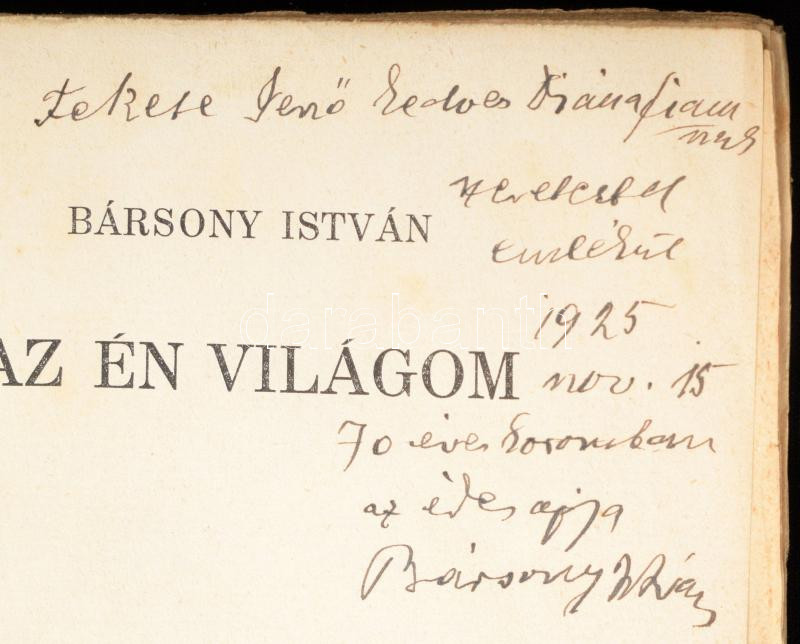 Fekete Jenő kedves Diána fiam
nak
szeretettel
emlékül
BÁRSONY ISTVÁN
1925
AZ ÉN VILÁGOM
nov. 15
70 éves koromban
az édes apja
Bársony István
darabanth